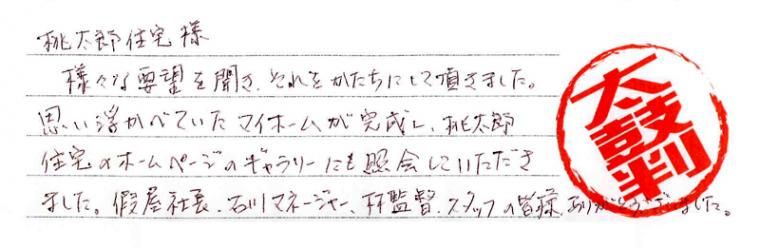 桃太郎住宅様
様々な要望を聞き、それをかたちにして頂きました。
思い浮かべていたマイホームが完成し、桃太郎
住宅のホームページのギャラリーにも照会していただき
ました。假屋社長、石川マネージャー、林監督、スタッフの皆様、ありがとうございました。
太鼓判